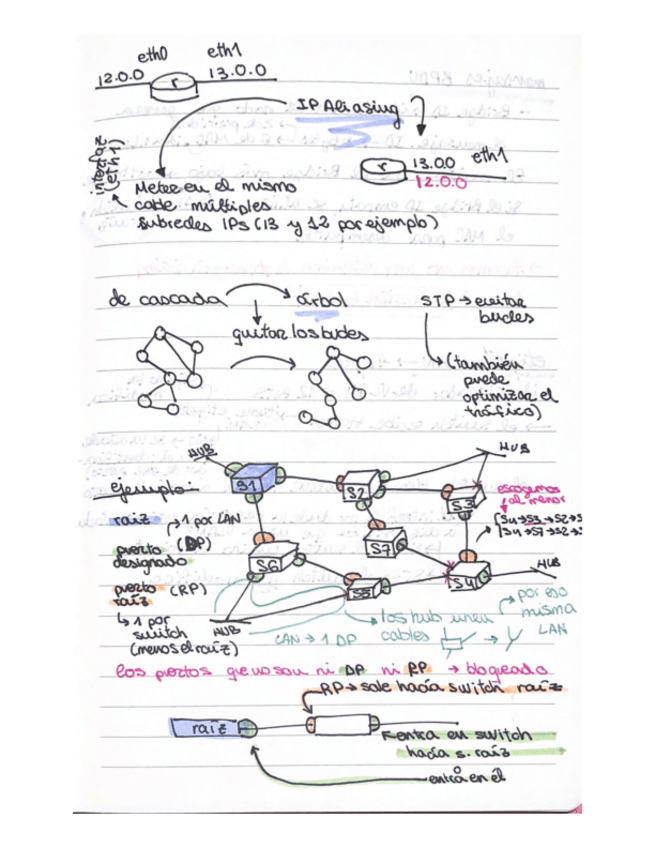 eth0 eth1
12.0.0 r 13.0.0
IP Aliasing
interfaz
(eth1)
r 13.0.0 eth1
12.0.0
Meter en el mismo
cable múltiples
subredes IPs (13 y 12 por ejemplo)
de cascada → árbol
quitar los bucles
STP → evitar
bucles
(también
puede
optimizar el
tráfico)
HUB
HUB
ejemplo:
S1
S2
S3
escogemos
al menor
raíz
→ 1 por LAN
puerto (DP)
designado
S6
S7
S4
HUB
puerto (RP)
raíz
S5
↳ 1 por
switch
(menos el raíz)
HUB
LAN → 1 DP
los hub unen
cables
→ por eso
misma
LAN
los puertos que no son ni DP ni RP → bloqueado
RP → sale hacia switch raíz
raíz
entra en switch
hacia s. raíz
entra en él